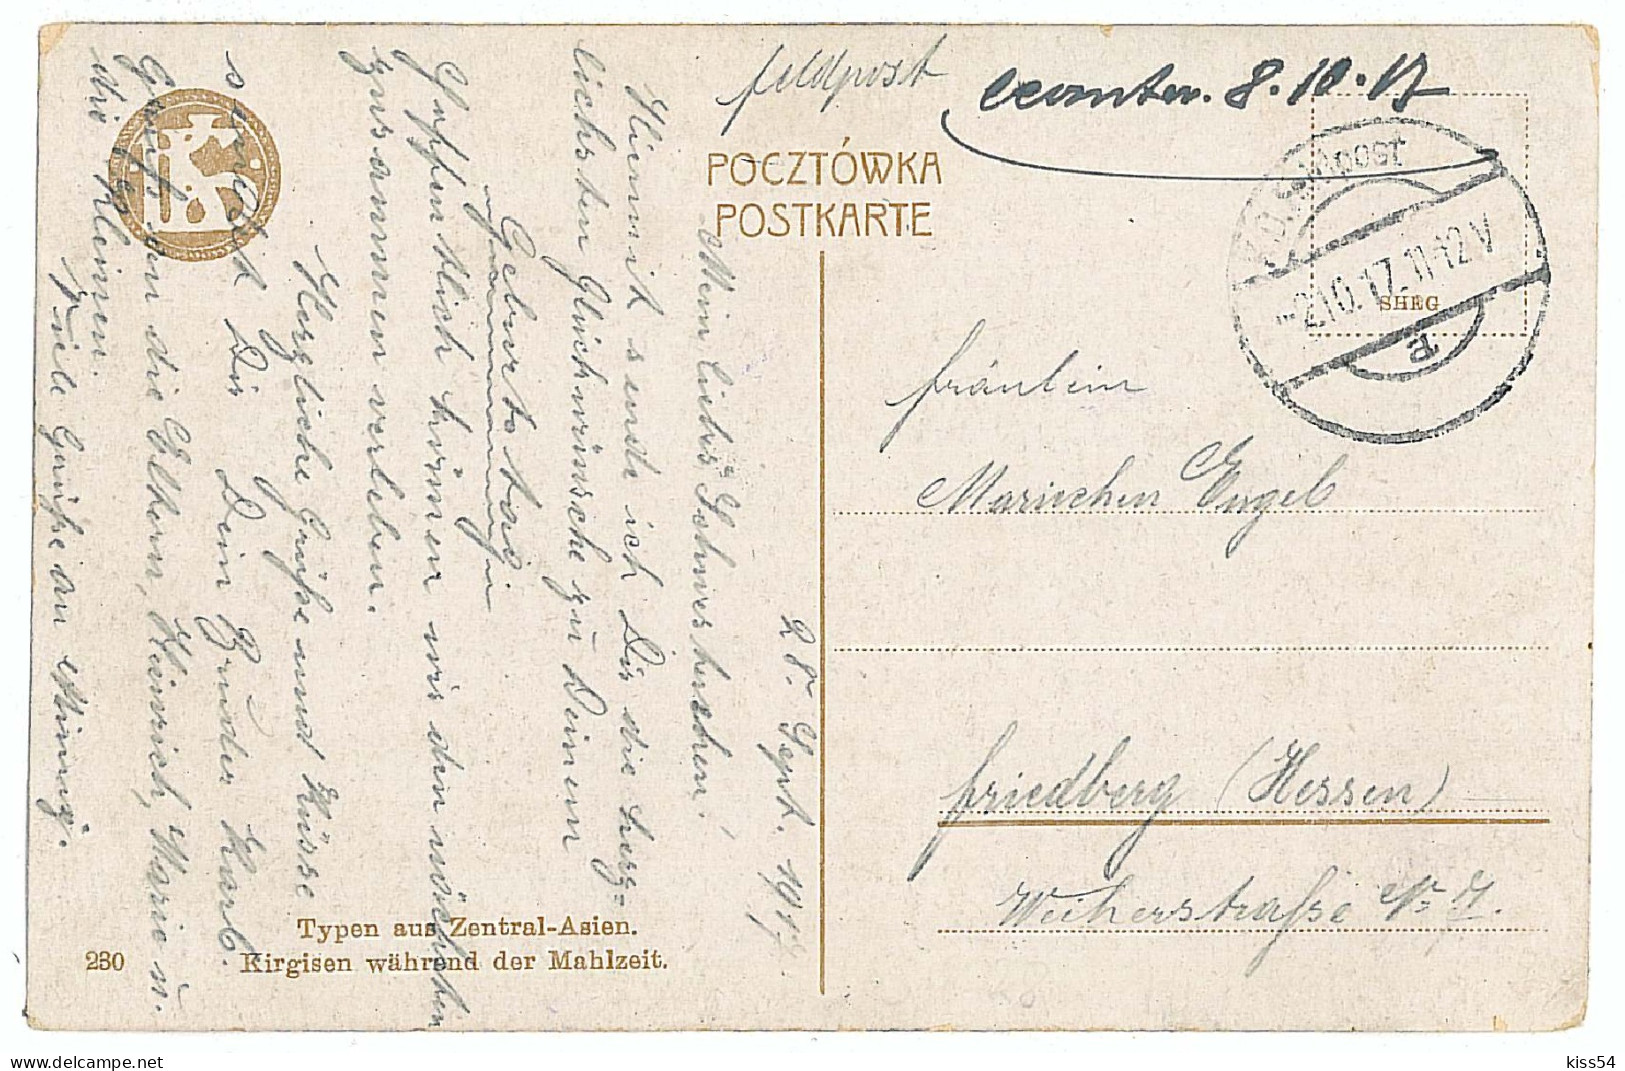 Feldpost
beantw. 8.10.17
POCZTÓWKA
POSTKARTE
K.D. Feldpost
-2.10.17. 11-12 V
a
SHEG
28. Sept. 1917.
Mein liebes Schwesterchen!
Hiermit sende ich Dir die herz=
lichsten Glückwünsche zu Deinem
Geburtstag
Hoffentlich können wir den nächsten
zusammen verleben.
Herzliche Grüße und Küsse
sendet Dir Dein Bruder Karl.
Gruß an die Eltern, Heinrich, Marie u.
die Kleinen.
Viele Grüße an Minng.
Fräulein
Mariechen Engel
Friedberg (Hessen)
Weiherstraße No 7.
Typen aus Zentral-Asien.
230 Kirgisen während der Mahlzeit.
kiss54